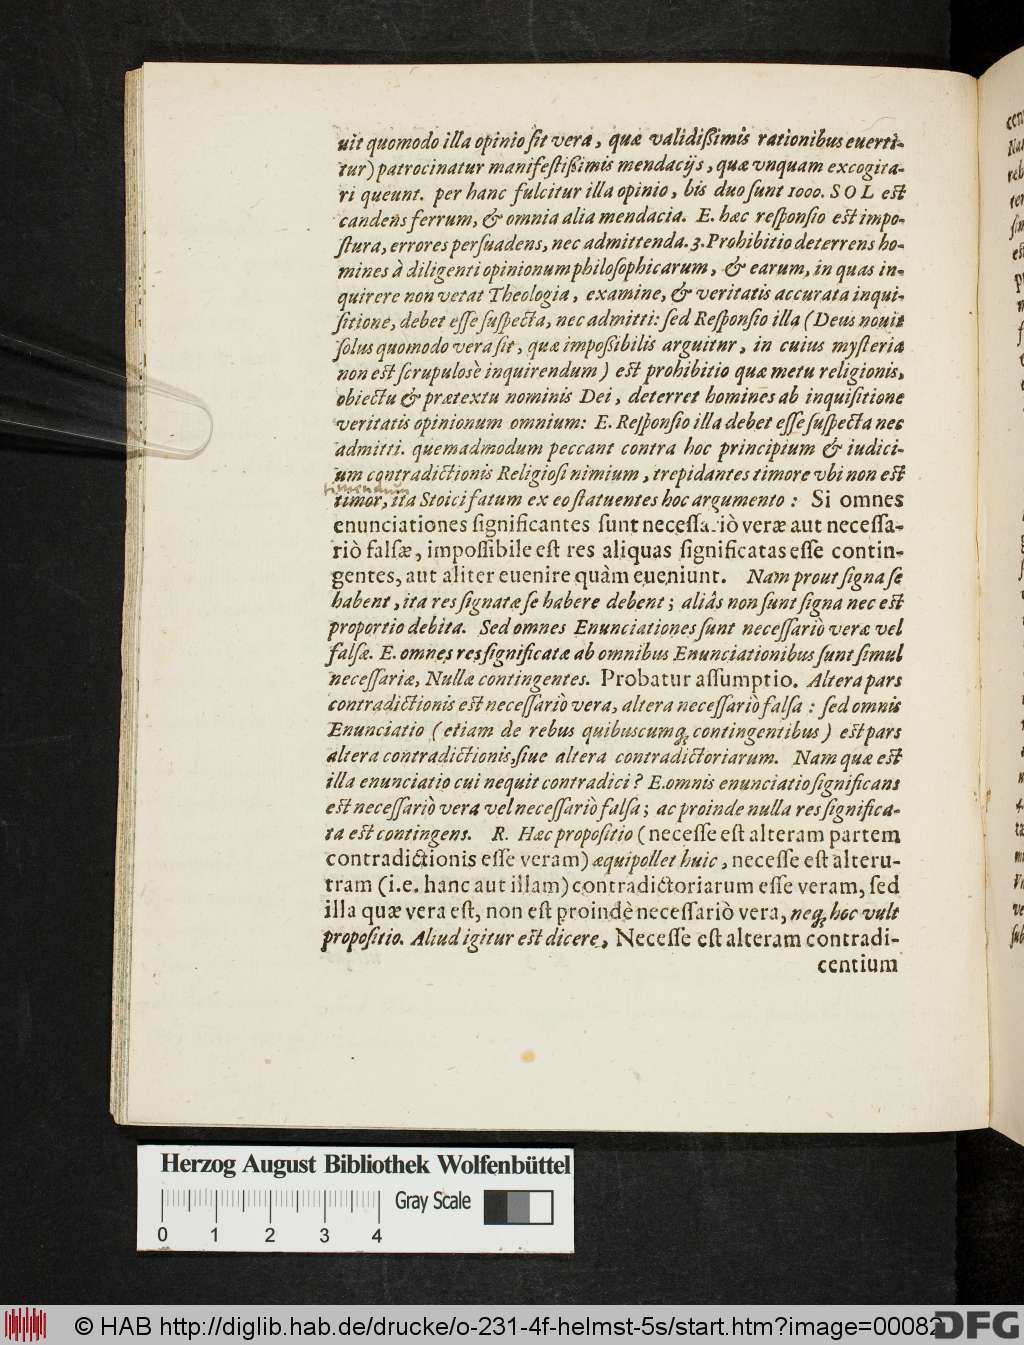 uit quomodo illa opinio ſit vera, quæ validißimis rationibus euerti-
tur) patrocinatur manifeſtißimis mendacijs, quæ vnquam excogita-
ri queunt. per hanc fulcitur illa opinio, bis duo ſunt 1000. SOL eſt
candens ferrum, & omnia alia mendacia. E. hæc reſponſio eſt impo-
ſtura, errores perſuadens, nec admittenda. 3. Prohibitio deterrens ho-
mines à diligenti opinionum philoſophicarum, & earum, in quas in-
quirere non vetat Theologia, examine, & veritatis accurata inqui-
ſitione, debet eſſe ſuſpecta, nec admitti: ſed Reſponſio illa (Deus nouit
ſolus quomodo vera ſit, quæ impoßibilis arguitur, in cuius myſteria
non eſt ſcrupulosè inquirendum) eſt prohibitio quæ metu religionis,
obiectu & prætextu nominis Dei, deterret homines ab inquiſitione
veritatis opinionum omnium: E. Reſponſio illa debet eſſe ſuſpecta nec
admitti. quemadmodum peccant contra hoc principium & iudici-
um contradictionis Religioſi nimium, trepidantes timore vbi non eſt
timendum
timor, ita Stoici fatum ex eo ſtatuentes hoc argumento: Si omnes
enunciationes ſignificantes ſunt neceſſariò veræ aut neceſſa-
riò falſæ, impoſſibile eſt res aliquas ſignificatas eſſe contin-
gentes, aut aliter euenire quàm eueniunt. Nam prout ſigna ſe
habent, ita res ſignatæ ſe habere debent; aliâs non ſunt ſigna nec eſt
proportio debita. Sed omnes Enunciationes ſunt neceſſariò veræ vel
falſæ. E. omnes res ſignificatæ ab omnibus Enunciationibus ſunt ſimul
neceſſariæ, Nullæ contingentes. Probatur aſſumptio. Altera pars
contradictionis eſt neceſſariò vera, altera neceſſariò falſa: ſed omnis
Enunciatio (etiam de rebus quibuscumq; contingentibus) eſt pars
altera contradictionis, ſiue altera contradictoriarum. Nam quæ eſt
illa enunciatio cui nequit contradici? E. omnis enunciatio ſignificans
eſt neceſſariò vera vel neceſſariò falſa; ac proinde nulla res ſignifica-
ta eſt contingens. R. Hæc propoſitio (neceſſe eſt alteram partem
contradictionis eſſe veram) æquipollet huic, neceſſe eſt alteru-
tram (i.e. hanc aut illam) contradictoriarum eſſe veram, ſed
illa quæ vera eſt, non eſt proindè neceſſariò vera, neq; hoc vult
propoſitio. Aliud igitur eſt dicere, Neceſſe eſt alteram contradi-
centium
Herzog August Bibliothek Wolfenbüttel
Gray Scale
0 1 2 3 4
© HAB http://diglib.hab.de/drucke/o-231-4f-helmst-5s/start.htm?image=00082
DFG